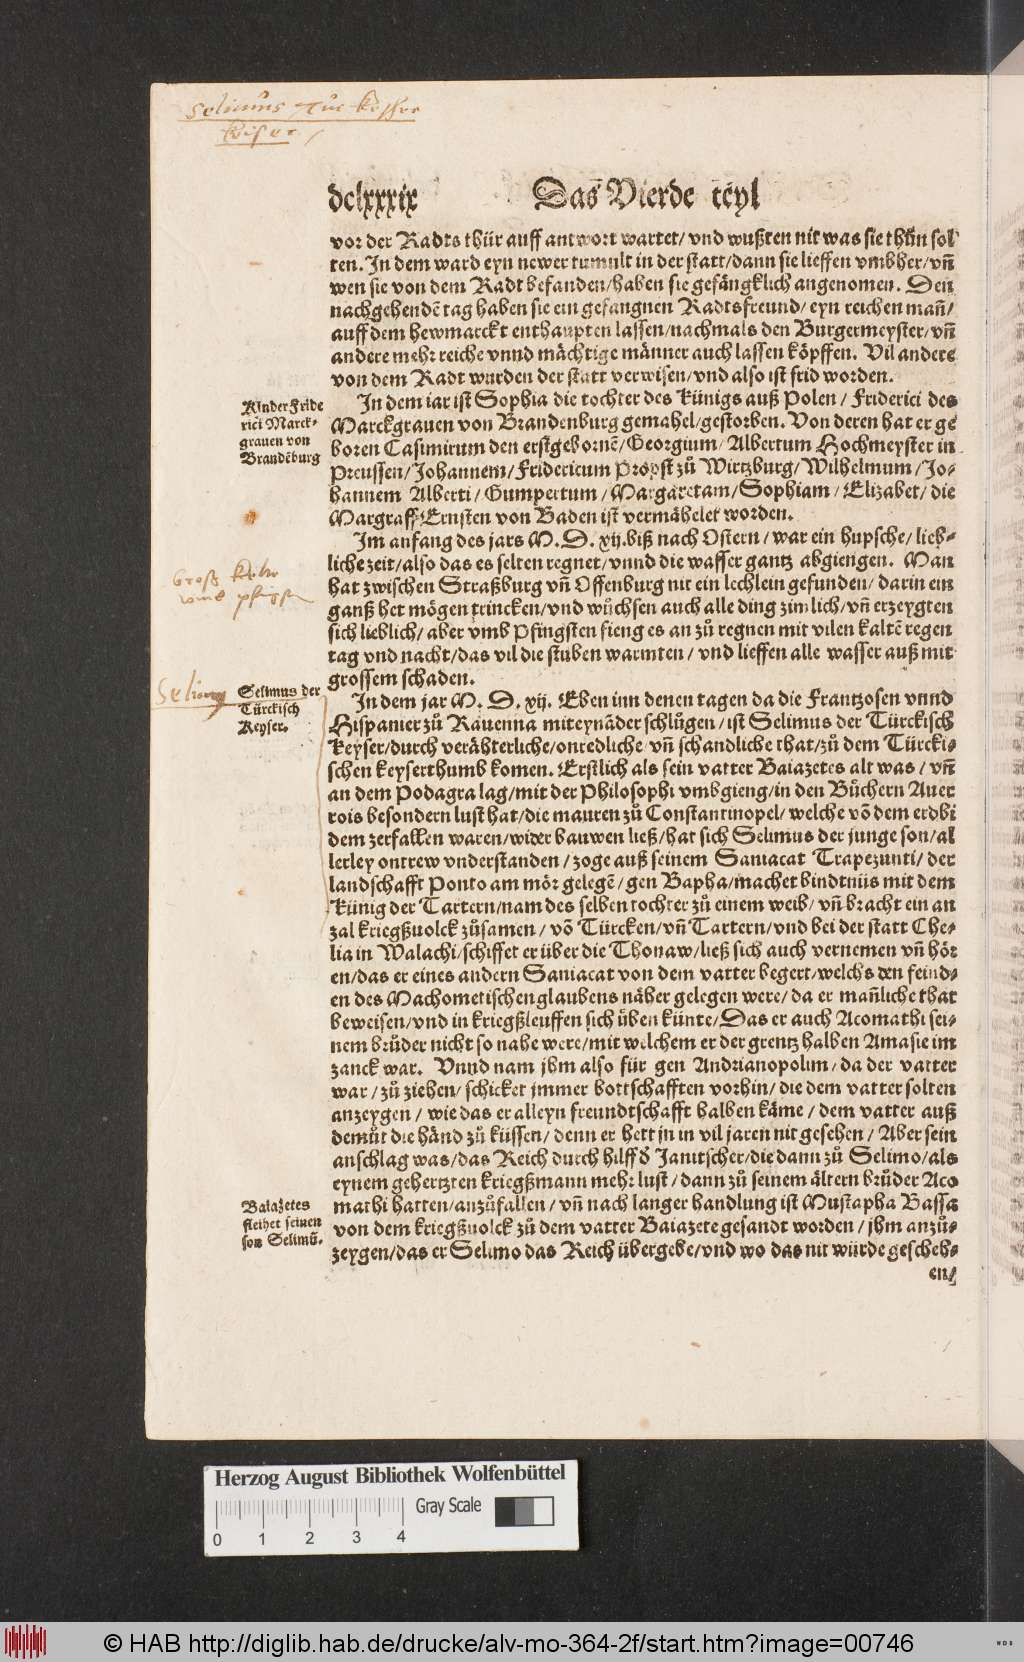 Selimus Türkescher
keiser
dclxxxix Das Vierde teyl
vor der Radts thür auff antwort wartet/ vnd wußten nit was sie thůn sol
ten. In dem ward eyn newer tumult in der statt/ dann sie lieffen vmbher/ vñ
wen sie von dem Radt befanden/ haben sie gefängklich angenomen. Den
nachgehendẽ tag haben sie ein gefangnen Radtsfreund/ eyn reichen mañ/
auff dem hewmarckt enthaupten lassen/ nachmals den Burgermeyster/ vñ
andere mehr reiche vnnd mächtige männer auch lassen köpffen. Vil anders
von dem Radt wurden der statt verwisen/ vnd also ist frid worden.
Kinder Fride
rici Marck-
grauen von
Brandẽburg
In dem iar ist Sophia die tochter des Künigs auß Polen/ Friderici des
Marckgrauen von Brandenburg gemahel/ gestorben. Von deren hat er ge
boren Casimirum den erstgebornẽ/ Georgium/ Albertum Hochmeyster in
Preussen/ Johannem/ Fridericum Propst zů Wirtzburg/ Wilhelmum/ Jo-
hannem Alberti/ Gumpertum/ Margaretam/ Sophiam/ Elizabet/ die
Margraff Ernsten von Baden ist vermähelet worden.
Im anfang des jars M. D. xij. biß nach Ostern/ war ein hupsche/ lieb-
liche zeit/ also das es selten regnet/ vnnd die wasser gantz abgiengen. Man
hat zwischen Straßburg vñ Offenburg nit ein lechlein gefunden/ darin ein
ganß het mögen trincken/ vnd wůchsen auch alle ding zimlich/ vñ erzeygten
sich lieblich/ aber vmb Pfingsten fieng es an zů regnen mit vilen kaltẽ regen
tag vnd nacht/ das vil die stuben warmten/ vnd lieffen alle wasser auß mit
grossem schaden.
Groß Kelte
vmb pfingsten
Selimus
Selimus der
Türckisch
Keyser.
In dem jar M. D. xij. Eben inn denen tagen da die Frantzosen vnnd
Hispanier zů Rauenna miteynãder schlůgen/ ist Selimus der Türckisch
keyser/ durch verähterliche/ onredliche/ vñ schandliche that/ zů dem Türcki-
schen keyserthumb komen. Erstlich als sein vatter Baiazetes alt was/ vñ
an dem Podagra lag/ mit der Philosophi vmbgieng/ in den Büchern Auer
rois besondern lust hat/ die mauren zů Constantinopel/ welche võ dem erdbi
dem zerfallen waren/ wider bauwen ließ/ hat sich Selimus der junge son/ al
lerley ontrew vnderstanden/ zoge auß seinem Saniacat Trapezunti/ der
landschafft Ponto am mör gelegẽ/ gen Bapha/ machet bindtnüs mit dem
Künig der Tartern/ nam des selben tochter zů einem weib/ vñ bracht ein an
zal kriegßuolck zůsamen/ võ Türcken/ vñ Tartern/ vnd bei der statt Che-
lia in Walachi/ schiffet er über die Thonaw/ ließ sich auch vernemen vñ hör
en/ das er eines andern Saniacat von dem vatter begert/ welchs den feind-
en des Machometischen glaubens näher gelegen were/ da er mañliche that
beweisen/ vnd in kriegßleuffen sich üben künte/ Das er auch Acomathi sei-
nem brůder nicht so nahe were/ mit welchem er der grentz halben Amasie im
zanck war. Vnnd nam jhm also für gen Andrianopolim/ da der vatter
war/ zů ziehen/ schicket jmmer bottschafften vorhin/ die dem vatter solten
anzeygen/ wie das er alleyn freundtschafft halben käme/ dem vatter auß
demůt die händ zů küssen/ denn er hett jn in vil jaren nit gesehen/ Aber sein
anschlag was/ das Reich durch hilff d̄ Janitscher/ die dann zů Selimo/ als
eynem gehertzten kriegßmann mehr lust/ dann zů seinem ältern brůder Aco
mathi hatten/ anzůfallen/ vñ nach langer handlung ist Mustapha Bassa
von dem kriegßuolck zů dem vatter Baiazete gesandt worden/ jhm anzů-
zeygen/ das er Selimo das Reich übergebe/ vnd wo das nit würde gescheh-
en/
Baiazetes
fleihet seinen
son Selimũ.
Herzog August Bibliothek Wolfenbüttel
Gray Scale
0 1 2 3 4
© HAB http://diglib.hab.de/drucke/alv-mo-364-2f/start.htm?image=00746